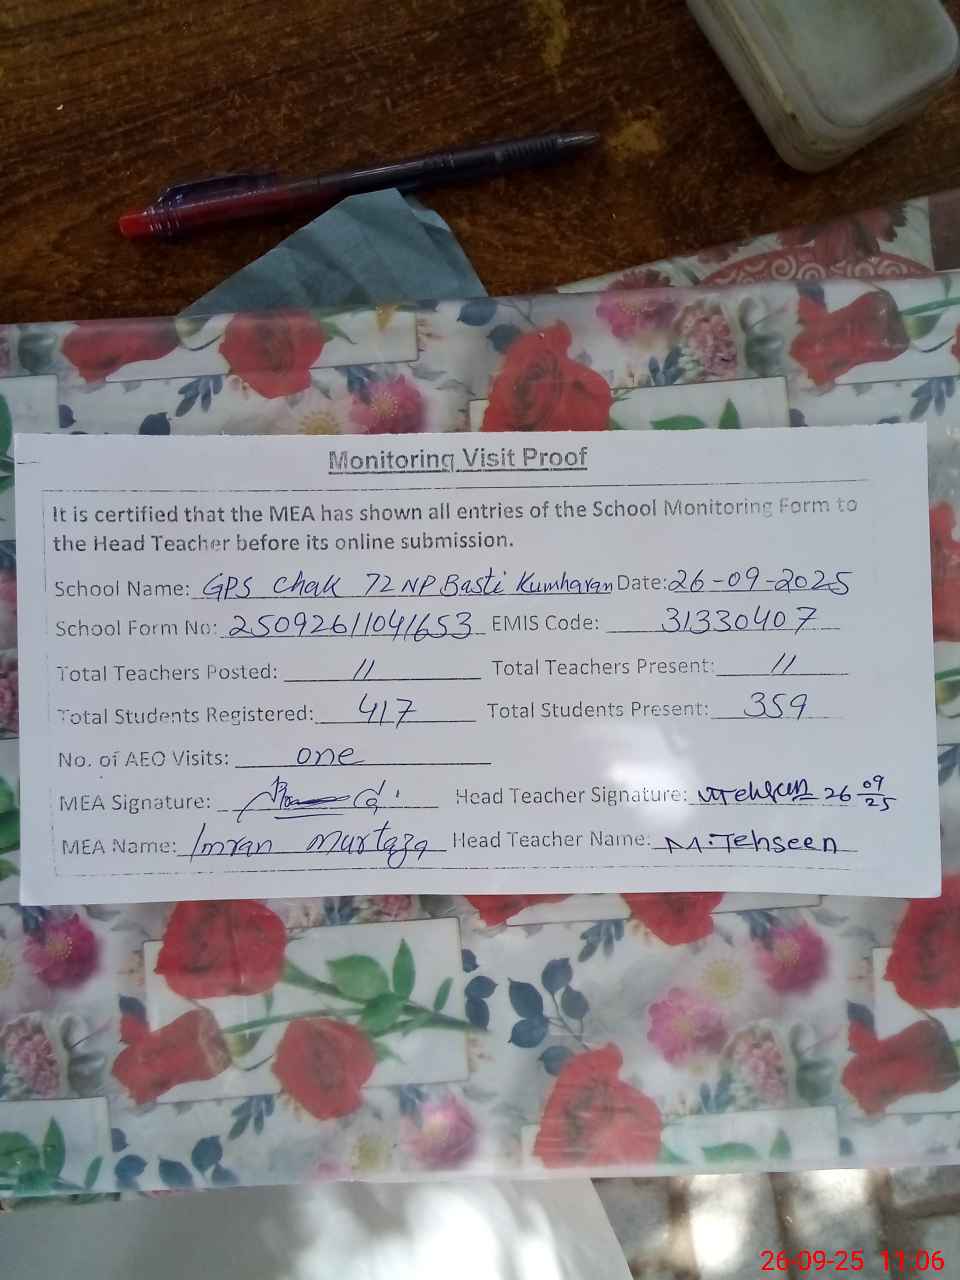 Monitoring Visit Proof
It is certified that the MEA has shown all entries of the School Monitoring Form to
the Head Teacher before its online submission.
School Name: GPS Chak 72 NP Basti Kumharan Date: 26-09-2025
School Form No: 25092611041653 EMIS Code: 31330407
Total Teachers Posted: 11 Total Teachers Present: 11
Total Students Registered: 417 Total Students Present: 359
No. of AEO Visits: one
MEA Signature: Head Teacher Signature: MTehseen 26 09/25
MEA Name: Imran Murtaza Head Teacher Name: M.Tehseen
26-09-25 11:06